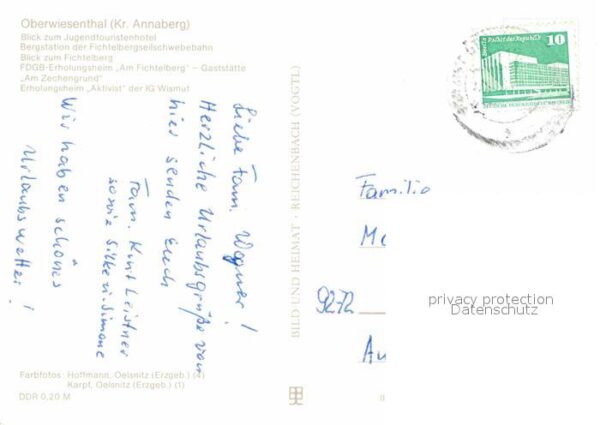 Oberwiesenthal (Kr. Annaberg)
Blick zum Jugendtouristenhotel
Bergstation der Fichtelbergseilschwebebahn
Blick zum Fichtelberg
FDGB-Erholungsheim „Am Fichtelberg" – Gaststätte
„Am Zechengrund"
Erholungsheim „Aktivist" der IG Wismut
Liebe Fam. Wegner!
Herzliche Urlaubsgrüße von
hier senden Euch
Fam. Kurt Leistner
sowie Silke u. Simone
Wir haben schönes
Urlaubswetter!
Farbfotos: Hoffmann, Oelsnitz (Erzgeb.) (4)
Karpf, Oelsnitz (Erzgeb.) (1)
DDR 0,20 M
BILD UND HEIMAT · REICHENBACH (VOGTL)
Berlin, Palast der Republik
10
Familie
9272
privacy protection
Datenschutz